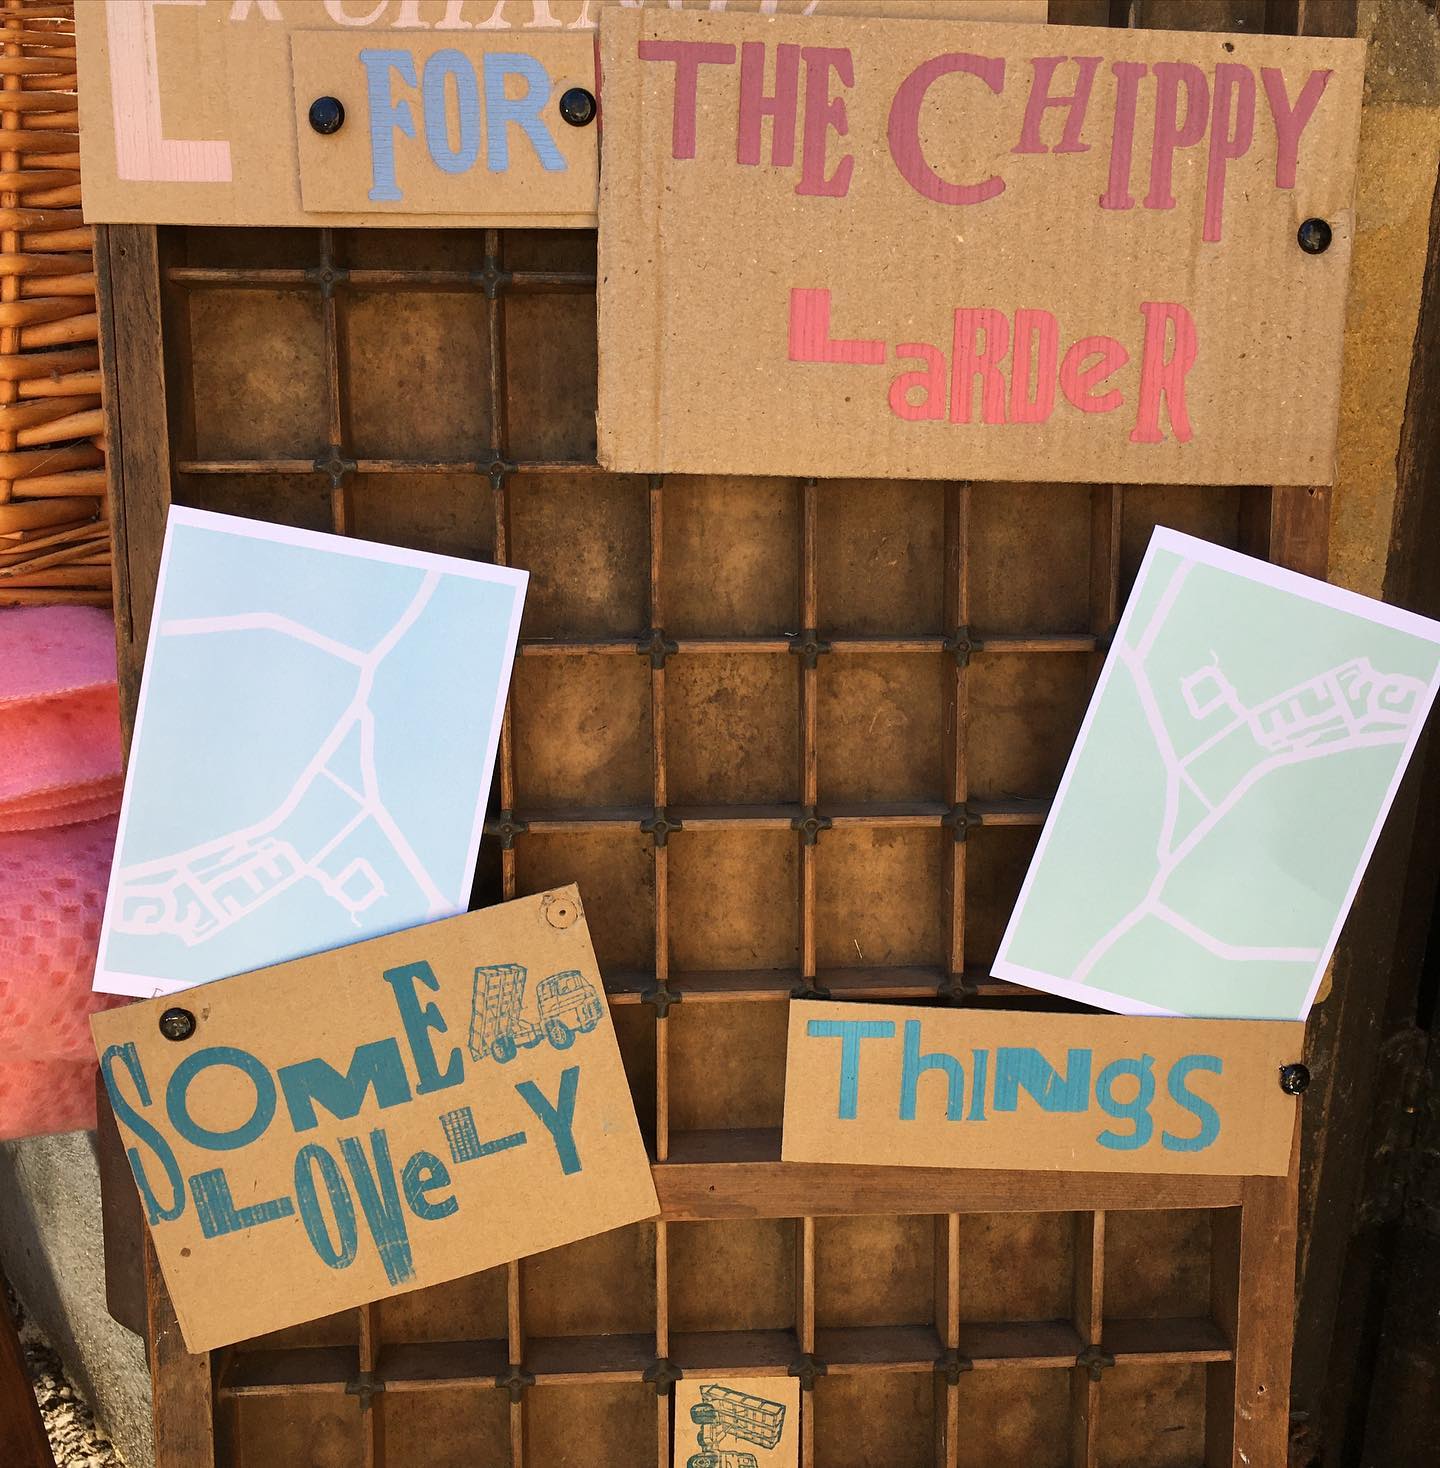 EXCHANGE
FOR
THE CHIPPY
LaRDeR
SOME
LOVeLY
ThINgS